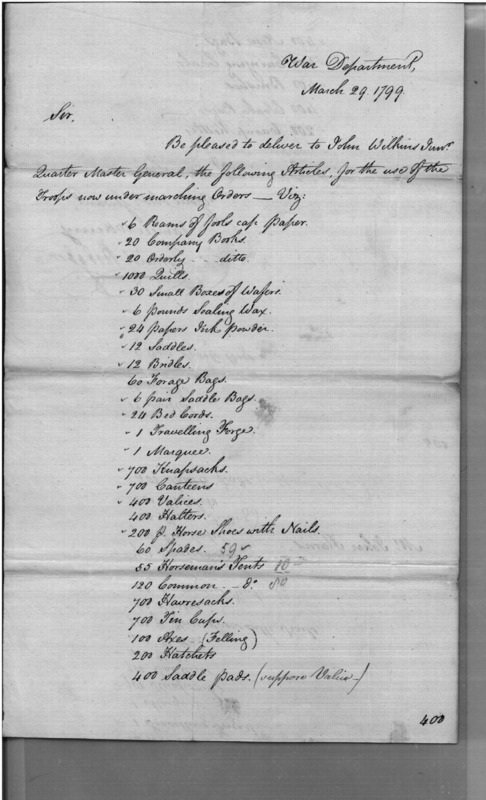 War Department,
March 29. 1799.
Sir,
Be pleased to deliver to John Wilkins Junr.
Quarter Master General, the following Articles, for the use of the
Troops now under marching Orders — Viz:
6 Reams of fools cap Paper.
20 Company Books.
20 Orderly - - ditto.
1000 Quills.
30 Small Boxes of Wafers.
6 pounds Sealing Wax.
24 papers Ink powder.
12 Saddles.
12 Bridles.
60 Forage Bags.
6 pair Saddle Bags.
24 Bed Cords.
1 Travelling Forge.
1 Marquee.
700 Knapsacks.
700 Canteens
400 Valices.
400 Halters.
200 p. Horse Shoes with Nails.
60 Spades. 59
55 Horseman's Tents 10
120 Common - do. 80
700 Havresacks.
700 Tin Cups.
100 Axes (Felling)
200 Hatchets
400 Saddle Pads. (suppose Valice)
400